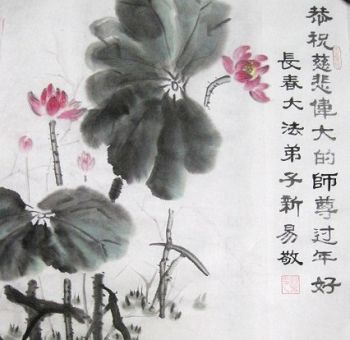 恭祝慈悲偉大的師尊过年好
長春大法弟子新易敬